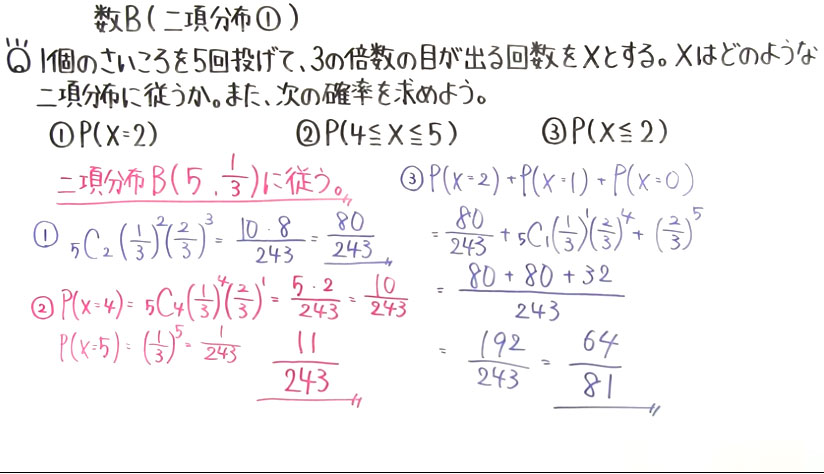 数B(二項分布①)
Q 1個のさいころを5回投げて、3の倍数の目が出る回数をXとする。Xはどのような
二項分布に従うか。また、次の確率を求めよう。
①P(X=2) ②P(4≦X≦5) ③P(X≦2)
二項分布B(5, 1/3)に従う。
① ₅C₂(1/3)²(2/3)³ = 10・8/243 = 80/243
② P(X=4) = ₅C₄(1/3)⁴(2/3)¹ = 5・2/243 = 10/243
P(X=5) = (1/3)⁵ = 1/243
11/243
③ P(X=2)+P(X=1)+P(X=0)
= 80/243 + ₅C₁(1/3)¹(2/3)⁴ + (2/3)⁵
= 80+80+32/243
= 192/243 = 64/81